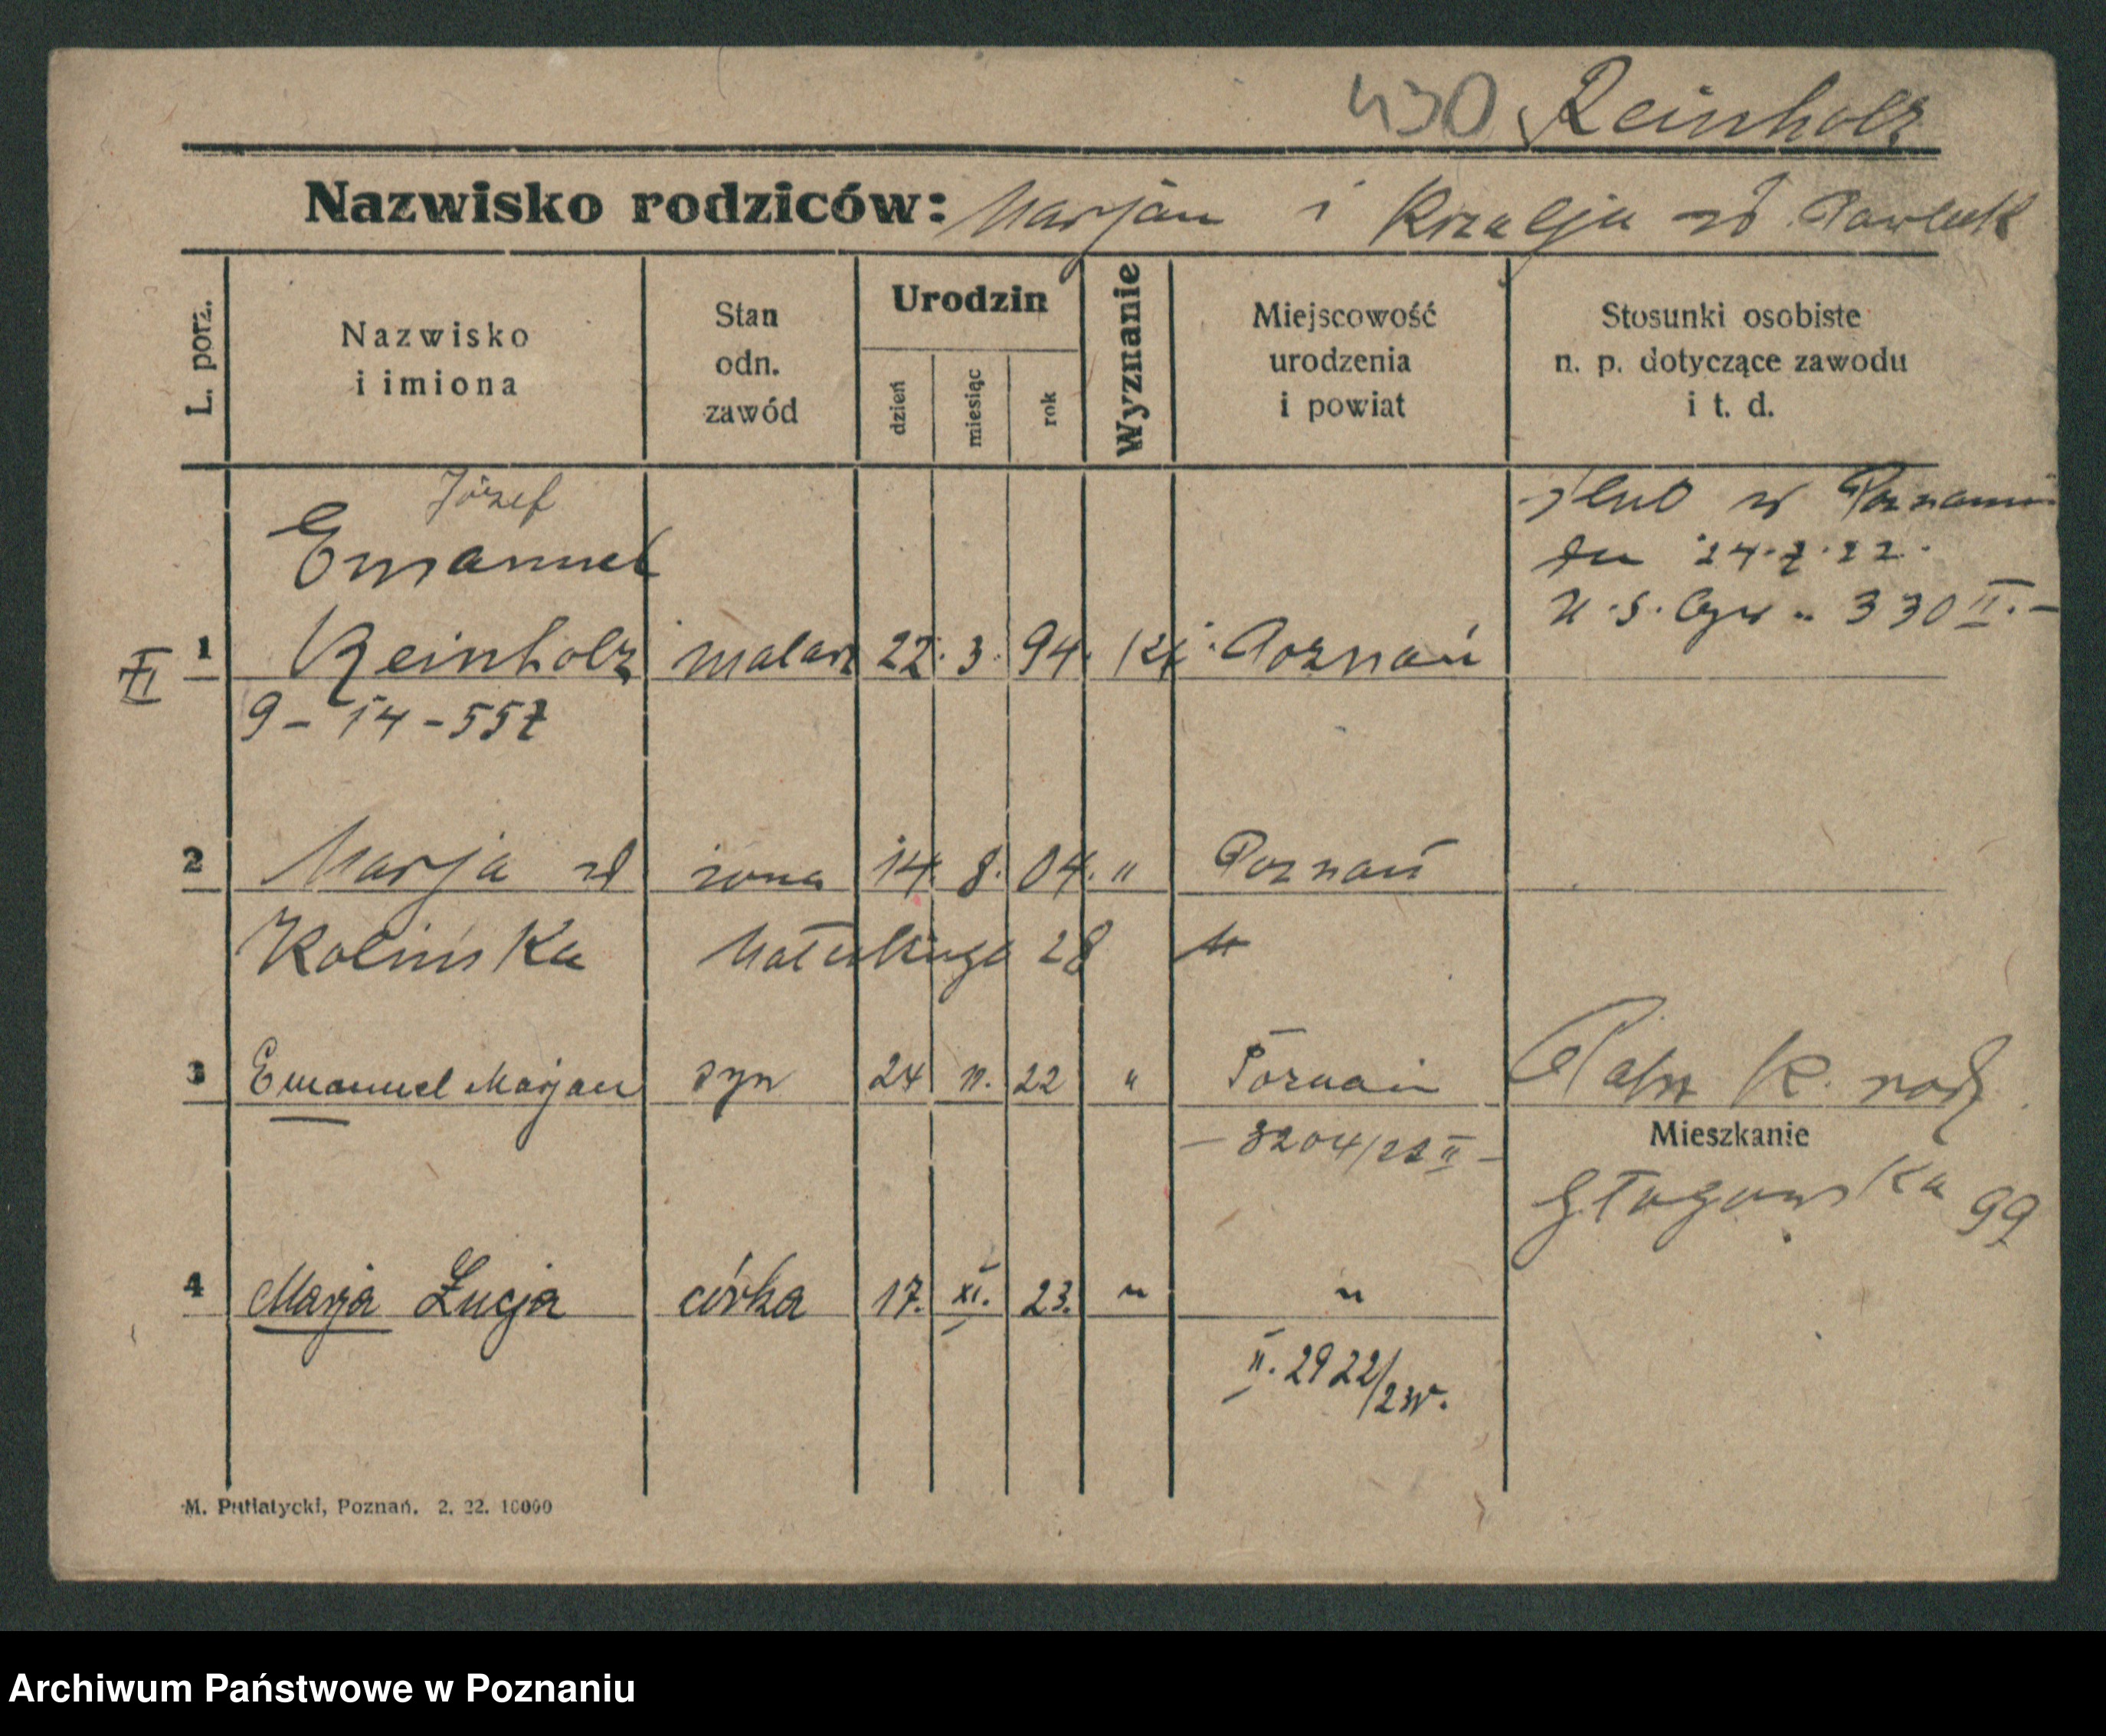 430 Reinholz
Nazwisko rodziców: Marjan i Rozalja zd Pawlak
L. porz.
Nazwisko
i imiona
Stan
odn.
zawód
Urodzin
dzień
miesiąc
rok
Wyznanie
Miejscowość
urodzenia
i powiat
Stosunki osobiste
n. p. dotyczące zawodu
i t. d.
Józef
Emanuel
ślub w Poznaniu
dn 24.7.22.
U.S. 330 II.-
VI 1 Reinholz malarz 22. 3. 94. Poznań
9-14-557
2 Marja zd żona 14. 8. 04. " Poznań
Kolińska 28
3 Emanuel Marjan syn 24 11. 22 " Poznań
K. rodz
- 3204/22 II -
Mieszkanie
Głogowska 99
4 Marja Łucja córka 17. XI. 23. " "
II. 2922/23r.
M. Putiatycki, Poznań. 2. 22. 10000
Archiwum Państwowe w Poznaniu